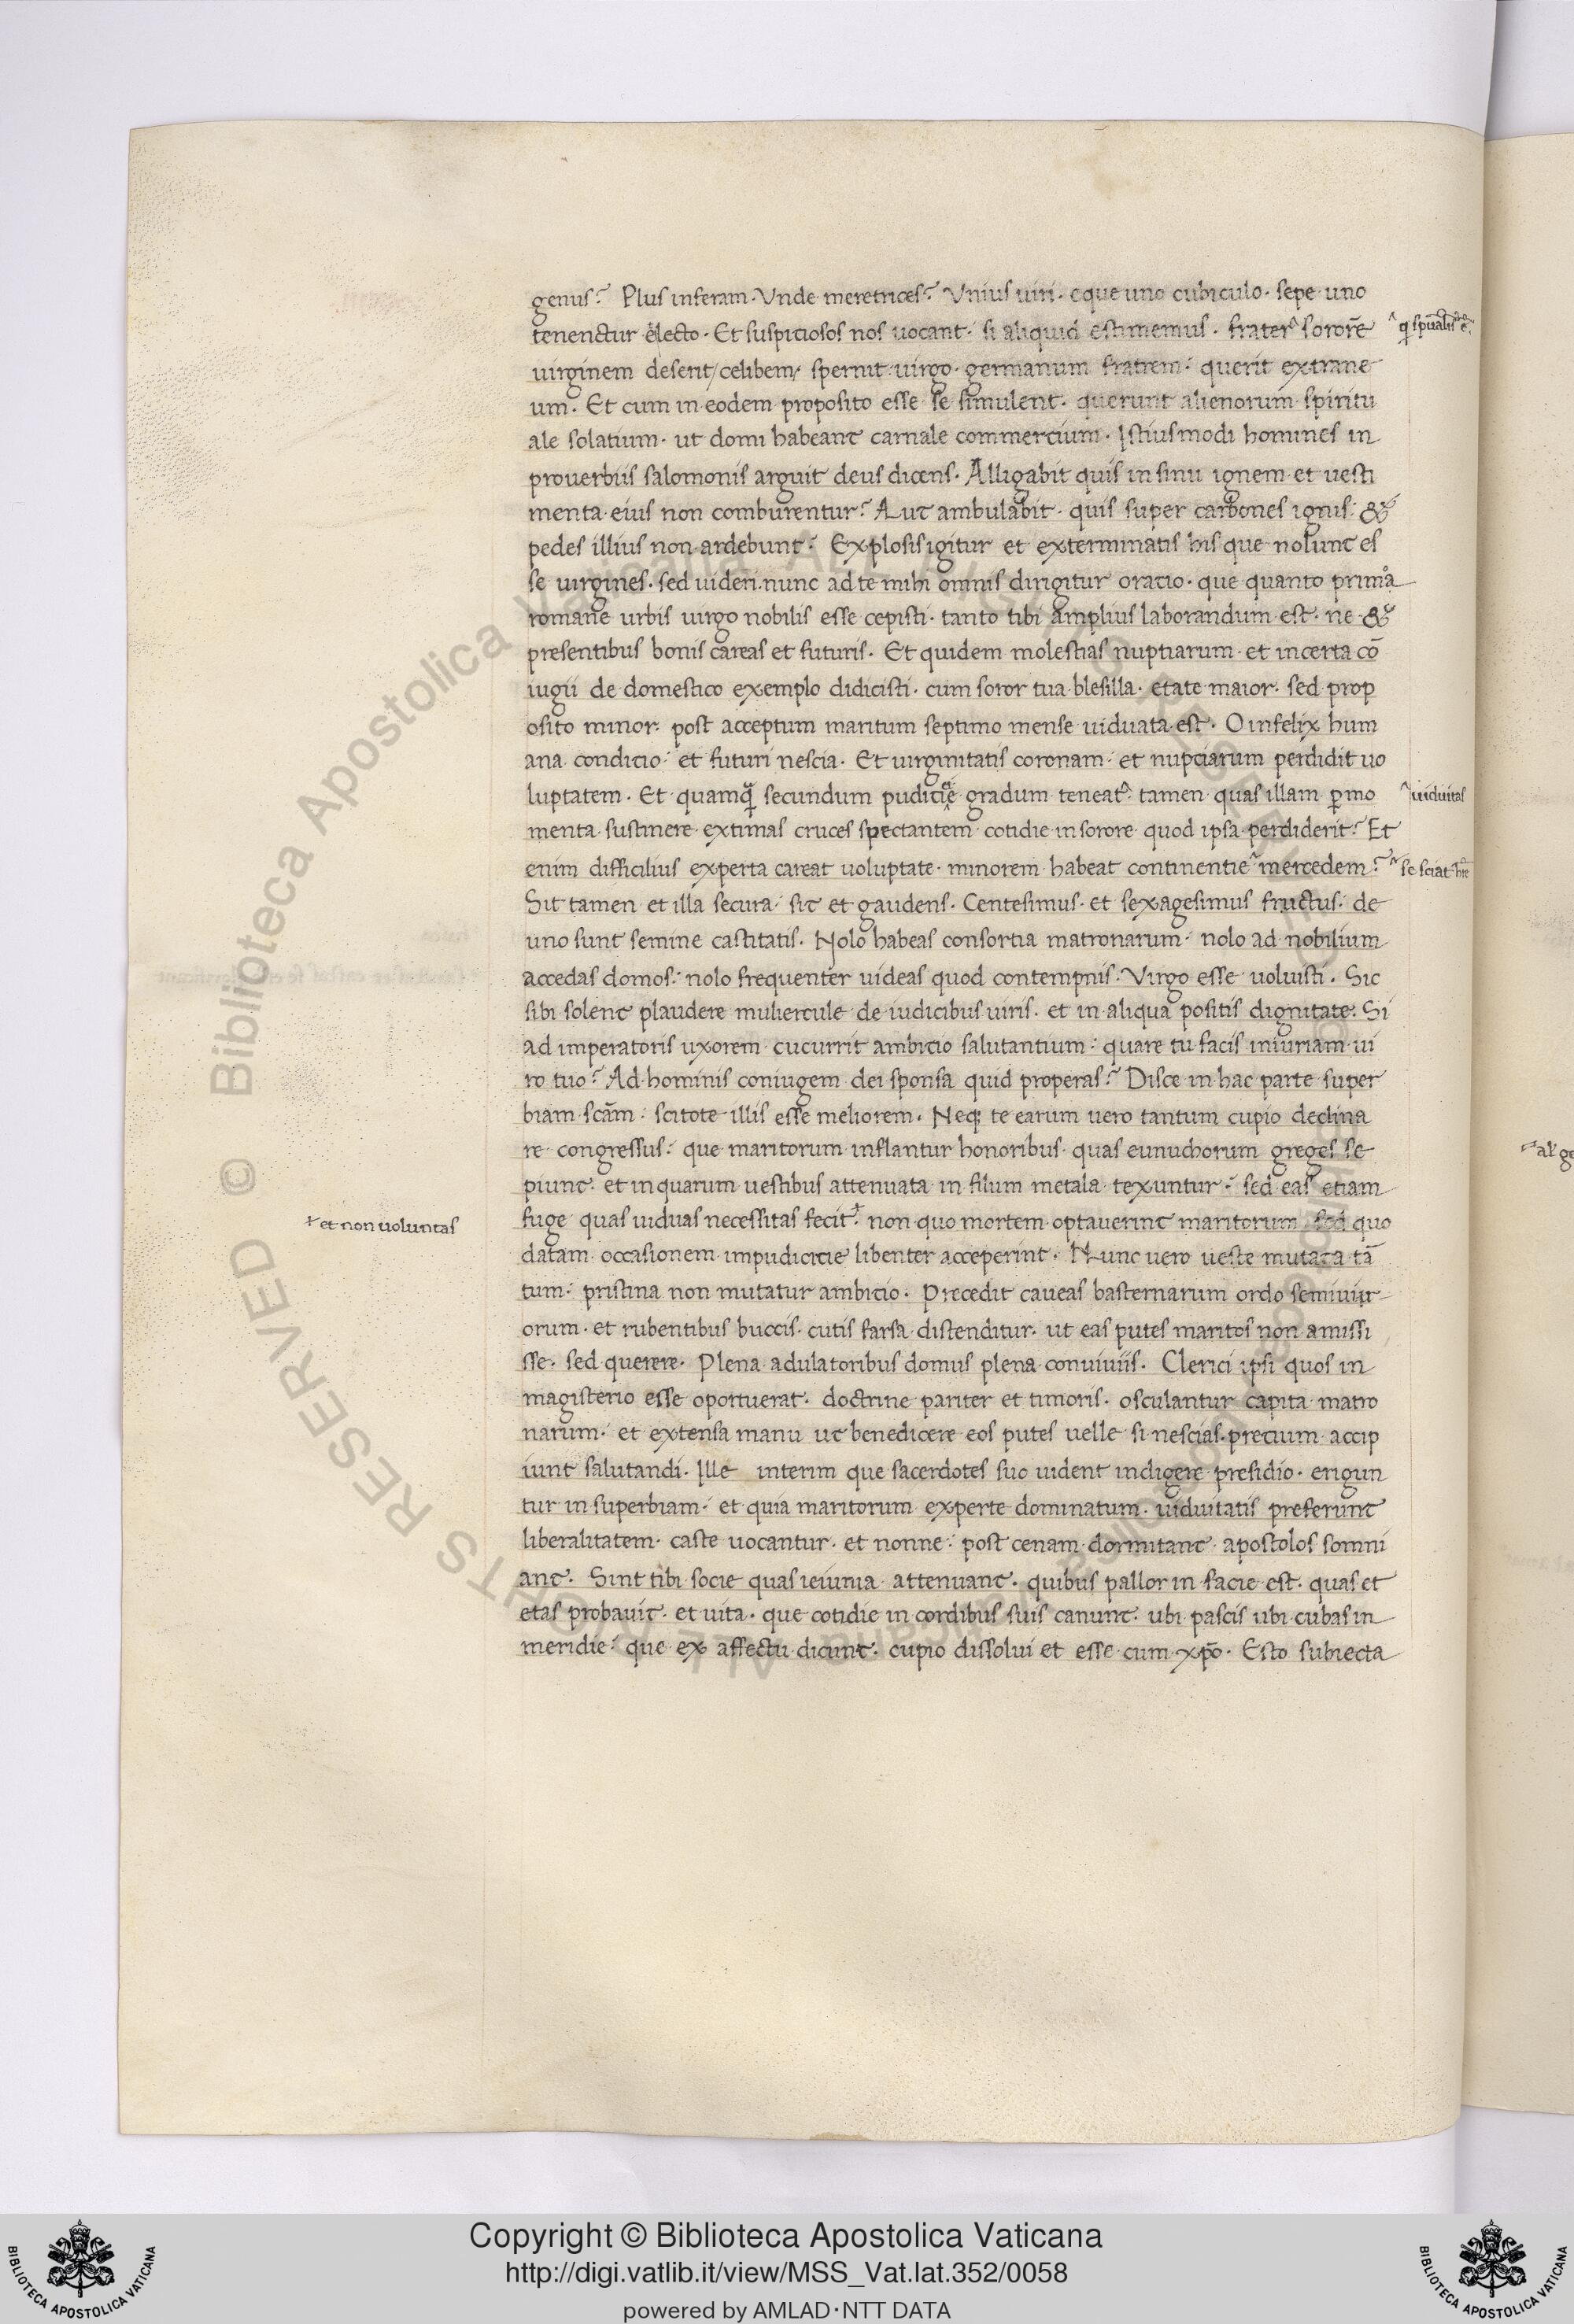 genus? Plus inferam. Vnde meretrices? Vnius uiri. eque uno cubiculo. sepe uno
tenenctur electo. Et suspiciosos nos uocant. si aliquid estimemus. frater sororē
q̣ spūalis ē
uirginem deserit/celibem/ spernit uirgo. germanum fratrem. querit extrane
um. Et cum in eodem proposito esse se simulent. querunt alienorum spiritu
ale solatium. ut domi habeant carnale commercium. Istiusmodi homines in
prouerbiis salomonis arguit deus dicens. Alligabit quis in sinu ignem et uesti
menta eius non comburentur? Aut ambulabit. quis super carbones ignis: &
pedes illius non ardebunt? Explosis igitur et exterminatis his que nolunt es
se uirgines. sed uideri. nunc ad te mihi omnis dirigitur oratio. que quanto prima
romane urbis uirgo nobilis esse cepisti. tanto tibi amplius laborandum est. ne &
presentibus bonis careas et futuris. Et quidem molestias nuptiarum et incerta cō
iugii de domestico exemplo didicisti. cum soror tua blesilla. etate maior. sed prop
osito minor. post acceptum maritum septimo mense uiduata est. O infelix hum
ana condicio: et futuri nescia. Et uirginitatis coronam: et nupciarum perdidit uo
luptatem. Et quamq̄ secundum pudicie gradum teneat. tamen quas illam ꝑ mo
uiduitas
menta sustinere extimas cruces spectantem cotidie in sorore quod ipsa perdiderit? Et
enim difficilius experta careat uoluptate. minorem habeat continentie mercedem?
se sciat hr̄e
Sit tamen et illa secura: sit et gaudens. Centesimus. et sexagesimus fructus: de
uno sunt semine castitatis. Nolo habeas consortia matronarum: nolo ad nobilium
accedas domos: nolo frequenter uideas quod contempnis. Virgo esse uoluisti. Sic
sibi solent plaudere muliercule de iudicibus uiris. et in aliqua positis dignitate. Si
ad imperatoris uxorem cucurrit ambicio salutantium: quare tu facis iniuriam ui
ro tuo? Ad hominis coniugem dei sponsa quid properas? Disce in hac parte super
biam scām: scitote illis esse meliorem. Neq; te earum uero tantum cupio declina
re congressus: que maritorum inflantur honoribus. quas eunuchorum greges se
piunt. et in quarum uestibus attenuata in filum metala texuntur: sed eas etiam
fuge quas uiduas necessitas fecit. non quo mortem optauerint maritorum. sed quo
et non uoluntas
datam occasionem impudicicie libenter acceperint. Nunc uero ueste mutata tā
tum: pristina non mutatur ambicio. Precedit caueas basternarum ordo semiuir
orum. et rubentibus buccis. cutis farsa distenditur. ut eas putes maritos non amissi
sse. sed querere. Plena adulatoribus domus plena conuiuiis. Clerici ipsi quos in
magisterio esse oportuerat. doctrine pariter et timoris. osculantur capita matro
narum. et extensa manu ut benedicere eos putes uelle si nescias. precium accip
iunt salutandi. Ille interim que sacerdotes suo uident indigere presidio. erigun
tur in superbiam: et quia maritorum experte dominatum. uiduitatis preferunt
liberalitatem. caste uocantur. et nonne: post cenam dormitant. apostolos somni
ant. Sint tibi socie quas ieiunia attenuant. quibus pallor in facie est. quas et
etas probauit. et uita. que cotidie in cordibus suis canunt. ubi pascis ubi cubas in
meridie: que ex affectu dicunt. cupio dissolui et esse cum xp̄o. Esto subiecta
Copyright © Biblioteca Apostolica Vaticana
http://digi.vatlib.it/view/MSS_Vat.lat.352/0058
powered by AMLAD·NTT DATA